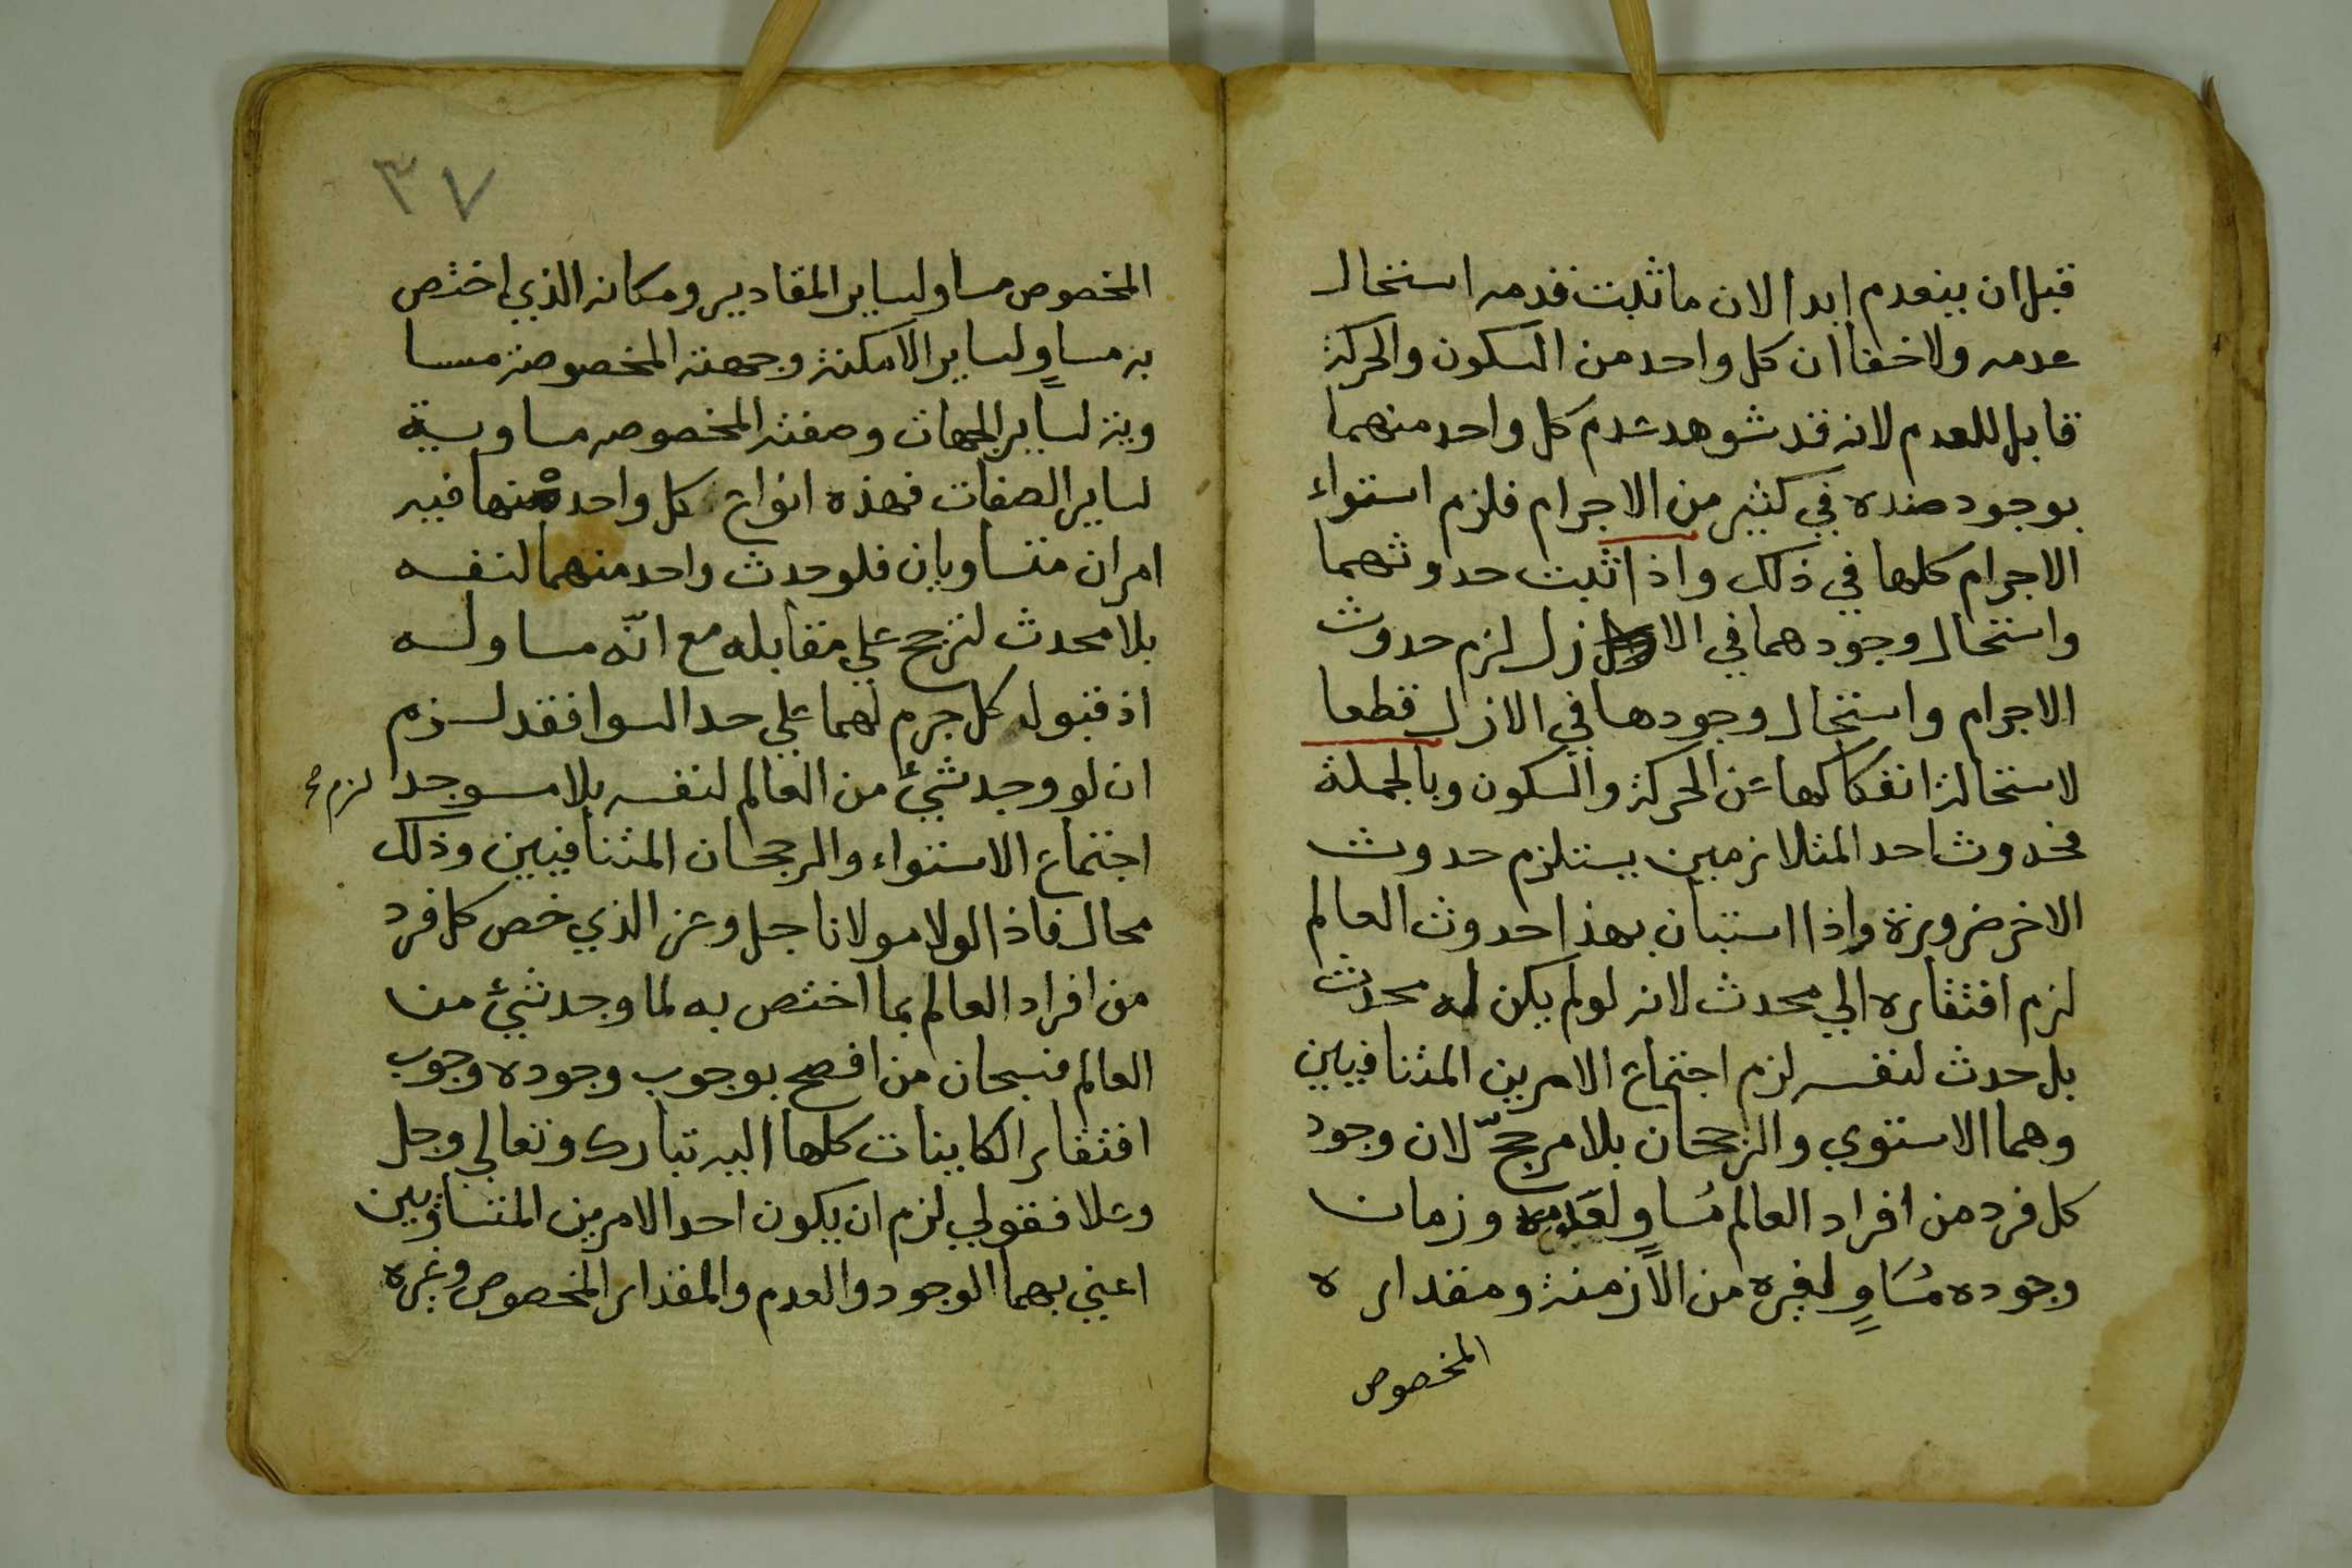 قبل ان ينعدم ابدا الان ما ثبت قدمه استحال
عدمه ولا خفا ان كل واحد من السكون والحركة
قابل للعدم لانه قد شوهد عدم كل واحد منهما
بوجود ضده في كثير من الاجرام فلزم استواء
الاجرام كلها في ذلك واذا ثبت حدوثهما
واستحال وجودهما في الازل لزم حدوث
الاجرام واستحال وجودها في الازل قطعا
لاستحالة انفكاكها عن الحركة والسكون وبالجملة
فحدوث احد المتلازمين يستلزم حدوث
الاخر ضرورة واذا استبان بهذا حدوث العالم
لزم افتقاره الي محدث لانه لو لم يكن له محدث
بل حدث لنفسه لزم اجتماع الامرين المتنافيين
وهما الاستوي والرجحان بلا مرجحّ لان وجود
كل فرد من افراد العالم مُساوٍ لعَدمه وزمان
وجوده مُسَاوٍ لغيره من الأزمنة ومقداره
المخصوص
٣٧
المخصوص مساو لساير المقادير ومكانه الذي اختص
به مساوٍ لساير الامكنة وجهته المخصوصة مسا
وية لساير الجهات وصفته المخصوصه مساوية
لساير الصفات فهذه انواع كل واحد منها فيه
امران متساويان فلو حدث واحد منهما لنفسه
بلا محدث لترجح علي مقابله مع انّه مساو له
اذ قبول كل جرم لهما علي حد السوا فقد لزم
ان لو وجد شيئ من العالم لنفسه بلا موجد لزم
اجتماع الاستواء والرجحان المتنافيين وذلك
محال فاذا لولا مولانا جل وعز الذي خص كل فرد
من افراد العالم بما اختص به لما وجد شيئ من
العالم فسبحان من افصح بوجوب وجوده وجوب
افتقار الكاينات كلها اليه تبارك وتعالي وجل
وعلا فقولي لزم ان يكون احد الامرين المتساويين
اعني بهما الوجود والعدم والمقدار المخصوص وغيره